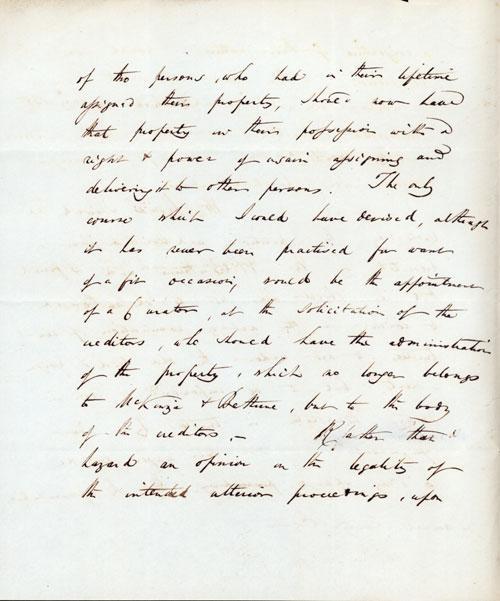 of the persons, who had in their lifetime
assigned their property, should now have
that property in their possession with a
right & power of again assigning and
delivering it to other persons. The only
course which I would have devised, although
it has never been practised for want
of a fit occasion, would be the appointment
of a Curator, at the solicitation of the
creditors, who should have the administration
of the property, which no longer belongs
to McKenzie & Bethune, but to the body
of the creditors. — Rather than
hazard an opinion on the legality of
the intended ulterior proceedings, upon